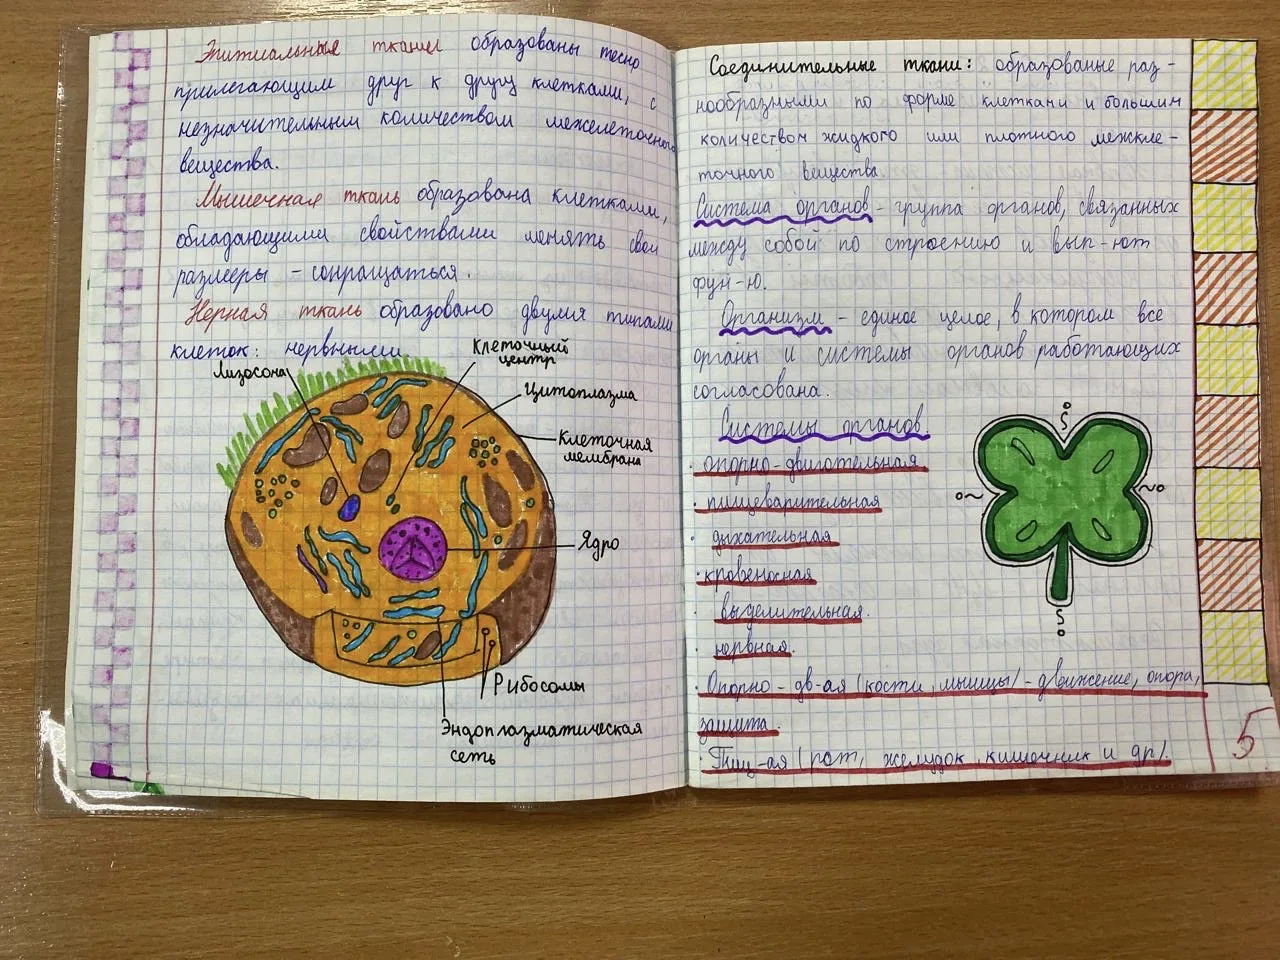 Эпитиальные ткани образованы тесно
прилегающим друг к другу клетками, с
незначительным количеством межклеточного
вещества.
Мышечная ткань образована клетками,
обладающими свойствами менять свои
размеры - сокращаться.
Нерная ткань образовано двумя типами
клеток: нервными
Лизосома
Клеточный
центр
Цитоплазма
Клеточная
мембрана
Ядро
Рибосомы
Эндоплазматическая
сеть
Соединительные ткани: образованые раз-
нообразными по форме клетками и большим
количеством жидкого или плотного межкле-
точного вещества.
Система органов - группа органов, связанных
между собой по строению и вып-ют
фун-ю.
Организм - единое целое, в котором все
органы и системы органов работающих
согласована.
Системы органов.
· опорно-двиготельная
· пищеварительная
дыхательная
· кровеносная
выделительная.
· нервная.
· Опорно-дв-ая (кости, мышцы) - движение, опора,
защита.
· Пищ-ая (рот, желудок, кишочник и др).
5